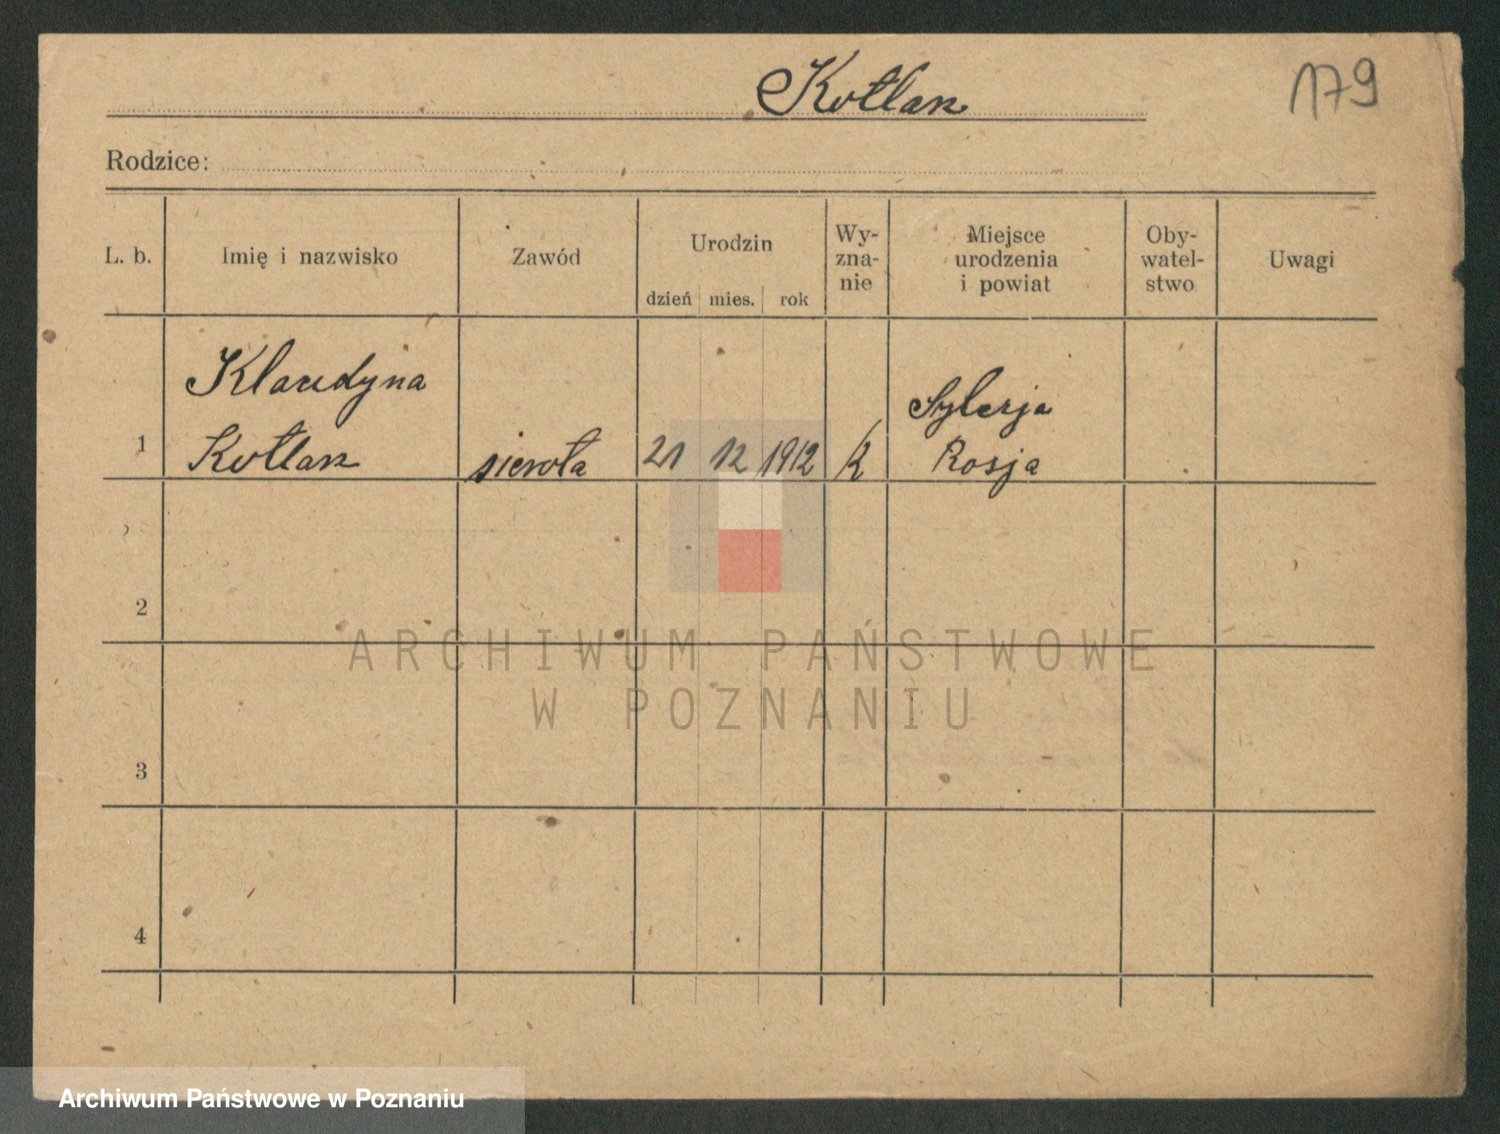 Kotlarz
179
Rodzice:
L. b.
Imię i nazwisko
Zawód
Urodzin
dzień
mies.
rok
Wy-
zna-
nie
Miejsce
urodzenia
i powiat
Oby-
watel-
stwo
Uwagi
1
Klaudyna
Kotlarz
sierota
21
12
1912
k
Syberja
Rosja
2
3
4
ARCHIWUM PAŃSTWOWE
W POZNANIU
Archiwum Państwowe w Poznaniu